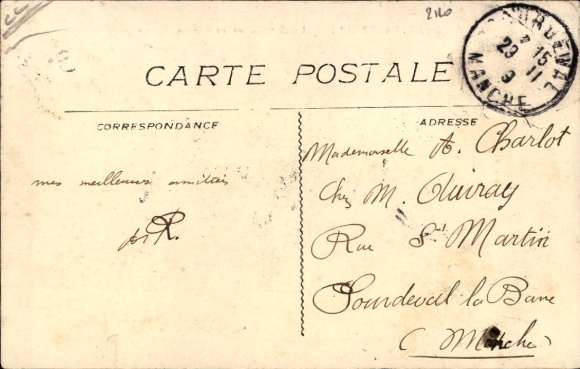 2110
SOURDEVAL
* 15
29 11
9
MANCHE
CARTE POSTALE
CORRESPONDANCE
ADRESSE
Mademoiselle A. Charlot
mes meilleures amitiés
Chez M.
R.
Rue St Martin
Sourdeval la Barre
(Manche)